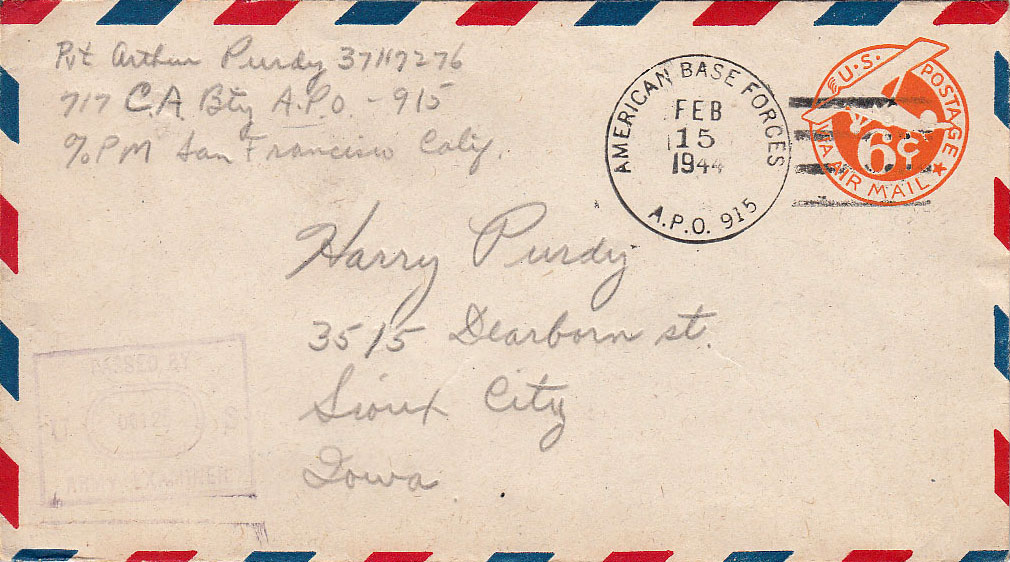 Pvt Arthur Purdy 37117276
717 C.A Bty A.P.O - 915
c/o PM San Francisco Calif.
AMERICAN BASE FORCES
FEB
15
1944
A.P.O. 915
U.S. POSTAGE
6¢
VIA AIR MAIL
Harry Purdy
3515 Dearborn st.
Sioux City
Iowa
PASSED BY
ARMY EXAMINER